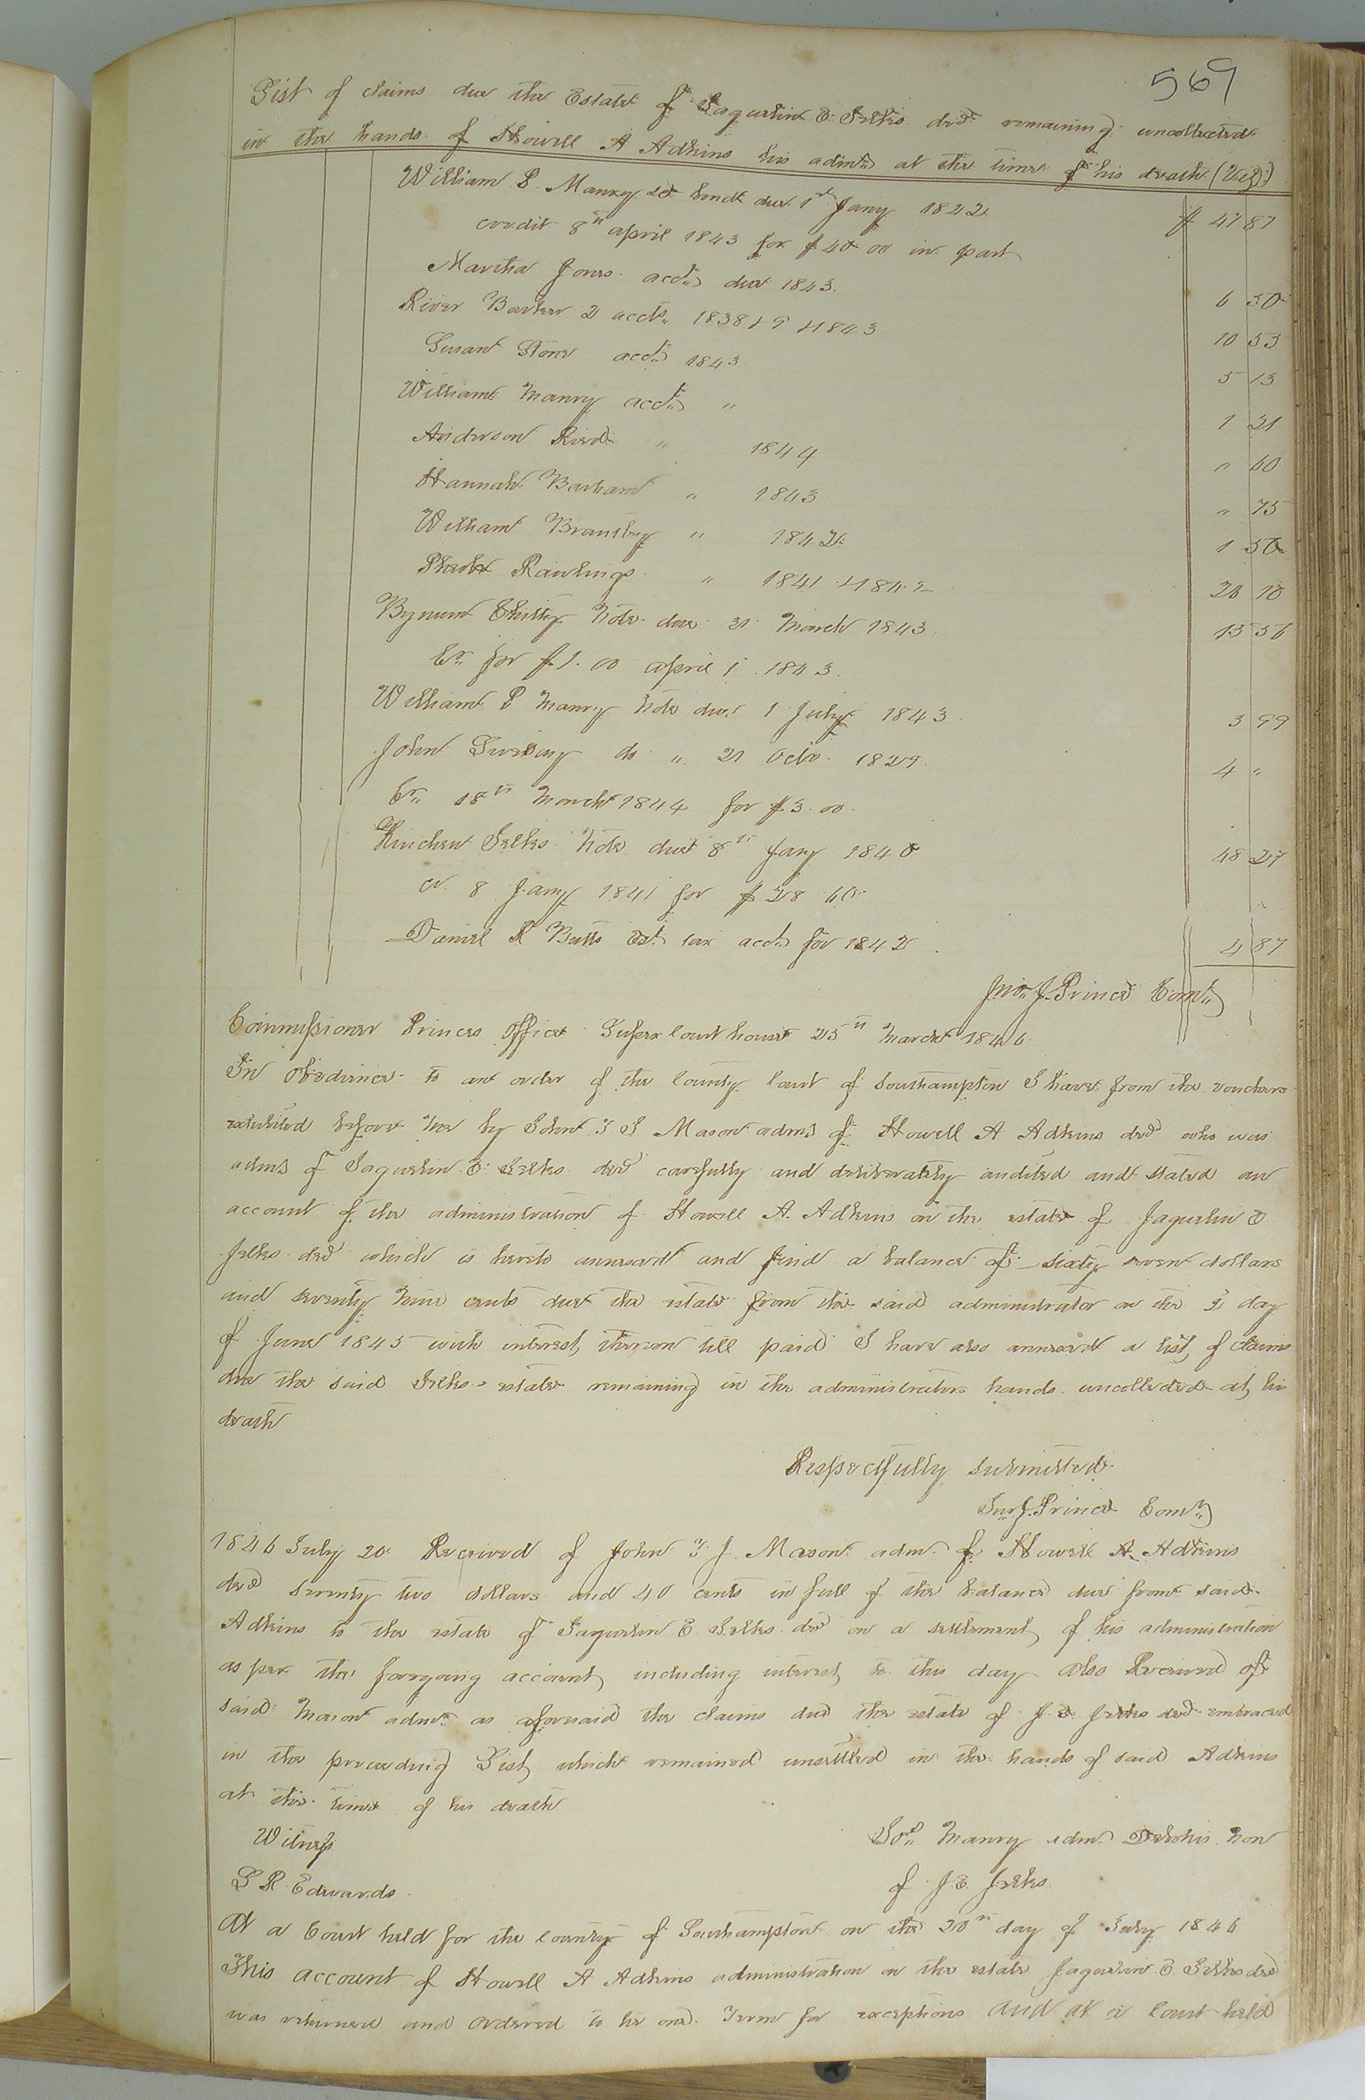 569
List of claims due the Estate of Jaquelin E Jelks decd remaining uncollected
in the hands of Howell A Adkins his admr at the time of his death (Viz)
William P. Manry bond due 1st Jany 1842 $ 47 87
credit 8th april 1843 for $40 00 in part
Martha Jones acct due 1843. 6 50
River Barham 2 accts 1838 & 9 & 1843 10 53
Susan Stone acct 1843 5 13
William Manry acct " 1 21
Anderson Reed " 1844 " 60
Hannah Barham " 1843 " 75
William Brantley " 1842 1 50
Rawlings " 1841 & 1842 20 10
Bynum Chitty Note due 31 March 1843 13 56
Cr for $1.00 april 1 1843.
William P Manry Note due 1 July 1843 3 99
John do " 21 Octo 1829 4 "
Cr 18th March 1844 for $3.00
Kinchen Jelks Note due 8th Jany 1840 48 27
cr 8 Jany 1841 for $28.60
Daniel R Butts Est tax acct for 1842 4 87
Jno. J. Prince Comr
Commissioner Princes Office Sussex Court house 25th March 1846
In Obedience to an order of the County Court of Southampton I have from the vouchers
exhibited before me by John T J Mason admr of Howell A Adkins decd who was
admr of Jaquelin E Jelks decd carefully and deliberately audited and stated an
account of the administration of Howell A. Adkins on the estate of Jaquelin E
Jelks decd which is hereto annexed and find a balance of sixty seven dollars
and seventy nine cents due the estate from the said administrator on the day
of June 1845 with interest thereon till paid I have also annexed a list of claims
due the said Jelks estate remaining in the administrators hands uncollected at his
death
Respectfully submitted
Jno J. Prince Comr
1846 July 20 Received of John T J Mason admr of Howell A Adkins
decd seventy two dollars and 40 cents in full of the balance due from said
Adkins to the estate of Jaquelin E Jelks decd on a settlement of his administration
as per the foregoing account including interest to this day also Received of
said Mason admr as aforesaid the claims due the estate of J. E. Jelks decd embraced
in the preceeding List which remained unsettled in the hands of said Adkins
at the time of his death
Witness Manry admr Debonis non
of J. E. Jelks
R. Edwards
At a Court held for the County of Southampton on the 20th day of July 1846
This account of Howell A Adkins administration on the estate Jaquelin E Jelks decd
was returned and ordered to lie one Term for exceptions and at a Court held